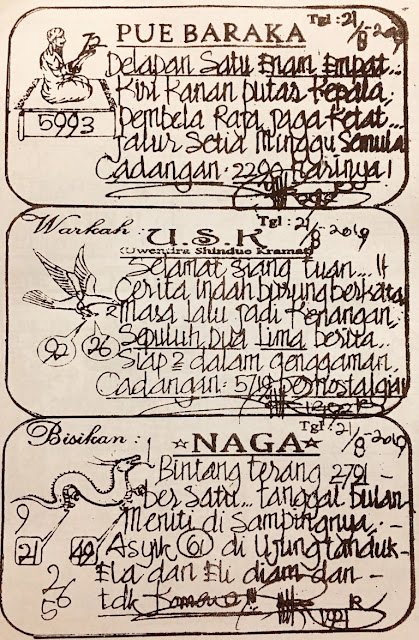 PUE BARAKA
Tgl: 21/8-2019
Delapan Satu Enam Empat..
Kiri Kanan putas Kepala,
pembela Raja jaga Ketat...
Jalur Setia Minggu Semula
Cadangan: 2290 Harinya!
5993
Warkah:
U.S.K
Tgl: 21/8-2019
(Uwentira Shinduo Kramat)
Selamat siang tuan....!!
Cerita indah burung berkata
masa lalu jadi Kenangan,
Sepuluh Dua Lima berita..
Siap 2 dalam genggaman.
Cadangan: 5/19
92 26
Bisikan:
☆NAGA☆
Tgl: 21/8-2019
Bintang terang 2791 -
ber Satu... tanggal bulan
Meniti di Sampingnya,
Asyik 61 di Ujung tanduk -
Ela dan Eli diam dan -
tdk
9
21 49
2
6
5